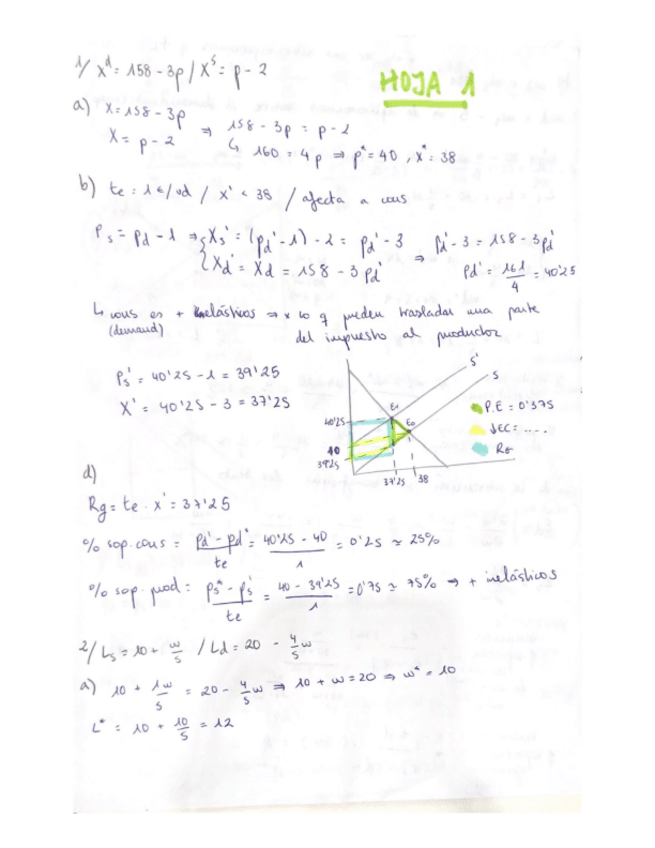 HOJA 1
1/ x^d = 158 - 3p / x^s = p - 2
a) x = 158 - 3p
x = p - 2 ⇒ 158 - 3p = p - 2
↳ 160 = 4p ⇒ p* = 40 , x* = 38
b) te = 1 €/ud / x' < 38 / afecta a cons
Ps = Pd - 1 ⇒ { Xs' = (Pd' - 1) - 2 = Pd' - 3
Xd' = Xd = 158 - 3Pd' ⇒ Pd' - 3 = 158 - 3Pd'
Pd' = 161/4 = 40'25
↳ cons es + elásticos ⇒ x lo q pueden trasladar una parte
(demand) del impuesto al productor
Ps' = 40'25 - 1 = 39'25
X' = 40'25 - 3 = 37'25
S'
S
E1
E0
40'25
40
39'25
37'25
38
P.E = 0'375
JEC = ....
Rg
d)
Rg = te · x' = 37'25
% sop. cons = (Pd' - Pd*)/te = (40'25 - 40)/1 = 0'25 ≈ 25%
% sop. prod = (Ps* - Ps')/te = (40 - 39'25)/1 = 0'75 ≈ 75% ⇒ + inelásticos
2/ Ls = 10 + w/5 / Ld = 20 - 4/5 w
a) 10 + 1w/5 = 20 - 4/5 w ⇒ 10 + w = 20 ⇒ w* = 10
L* = 10 + 10/5 = 12